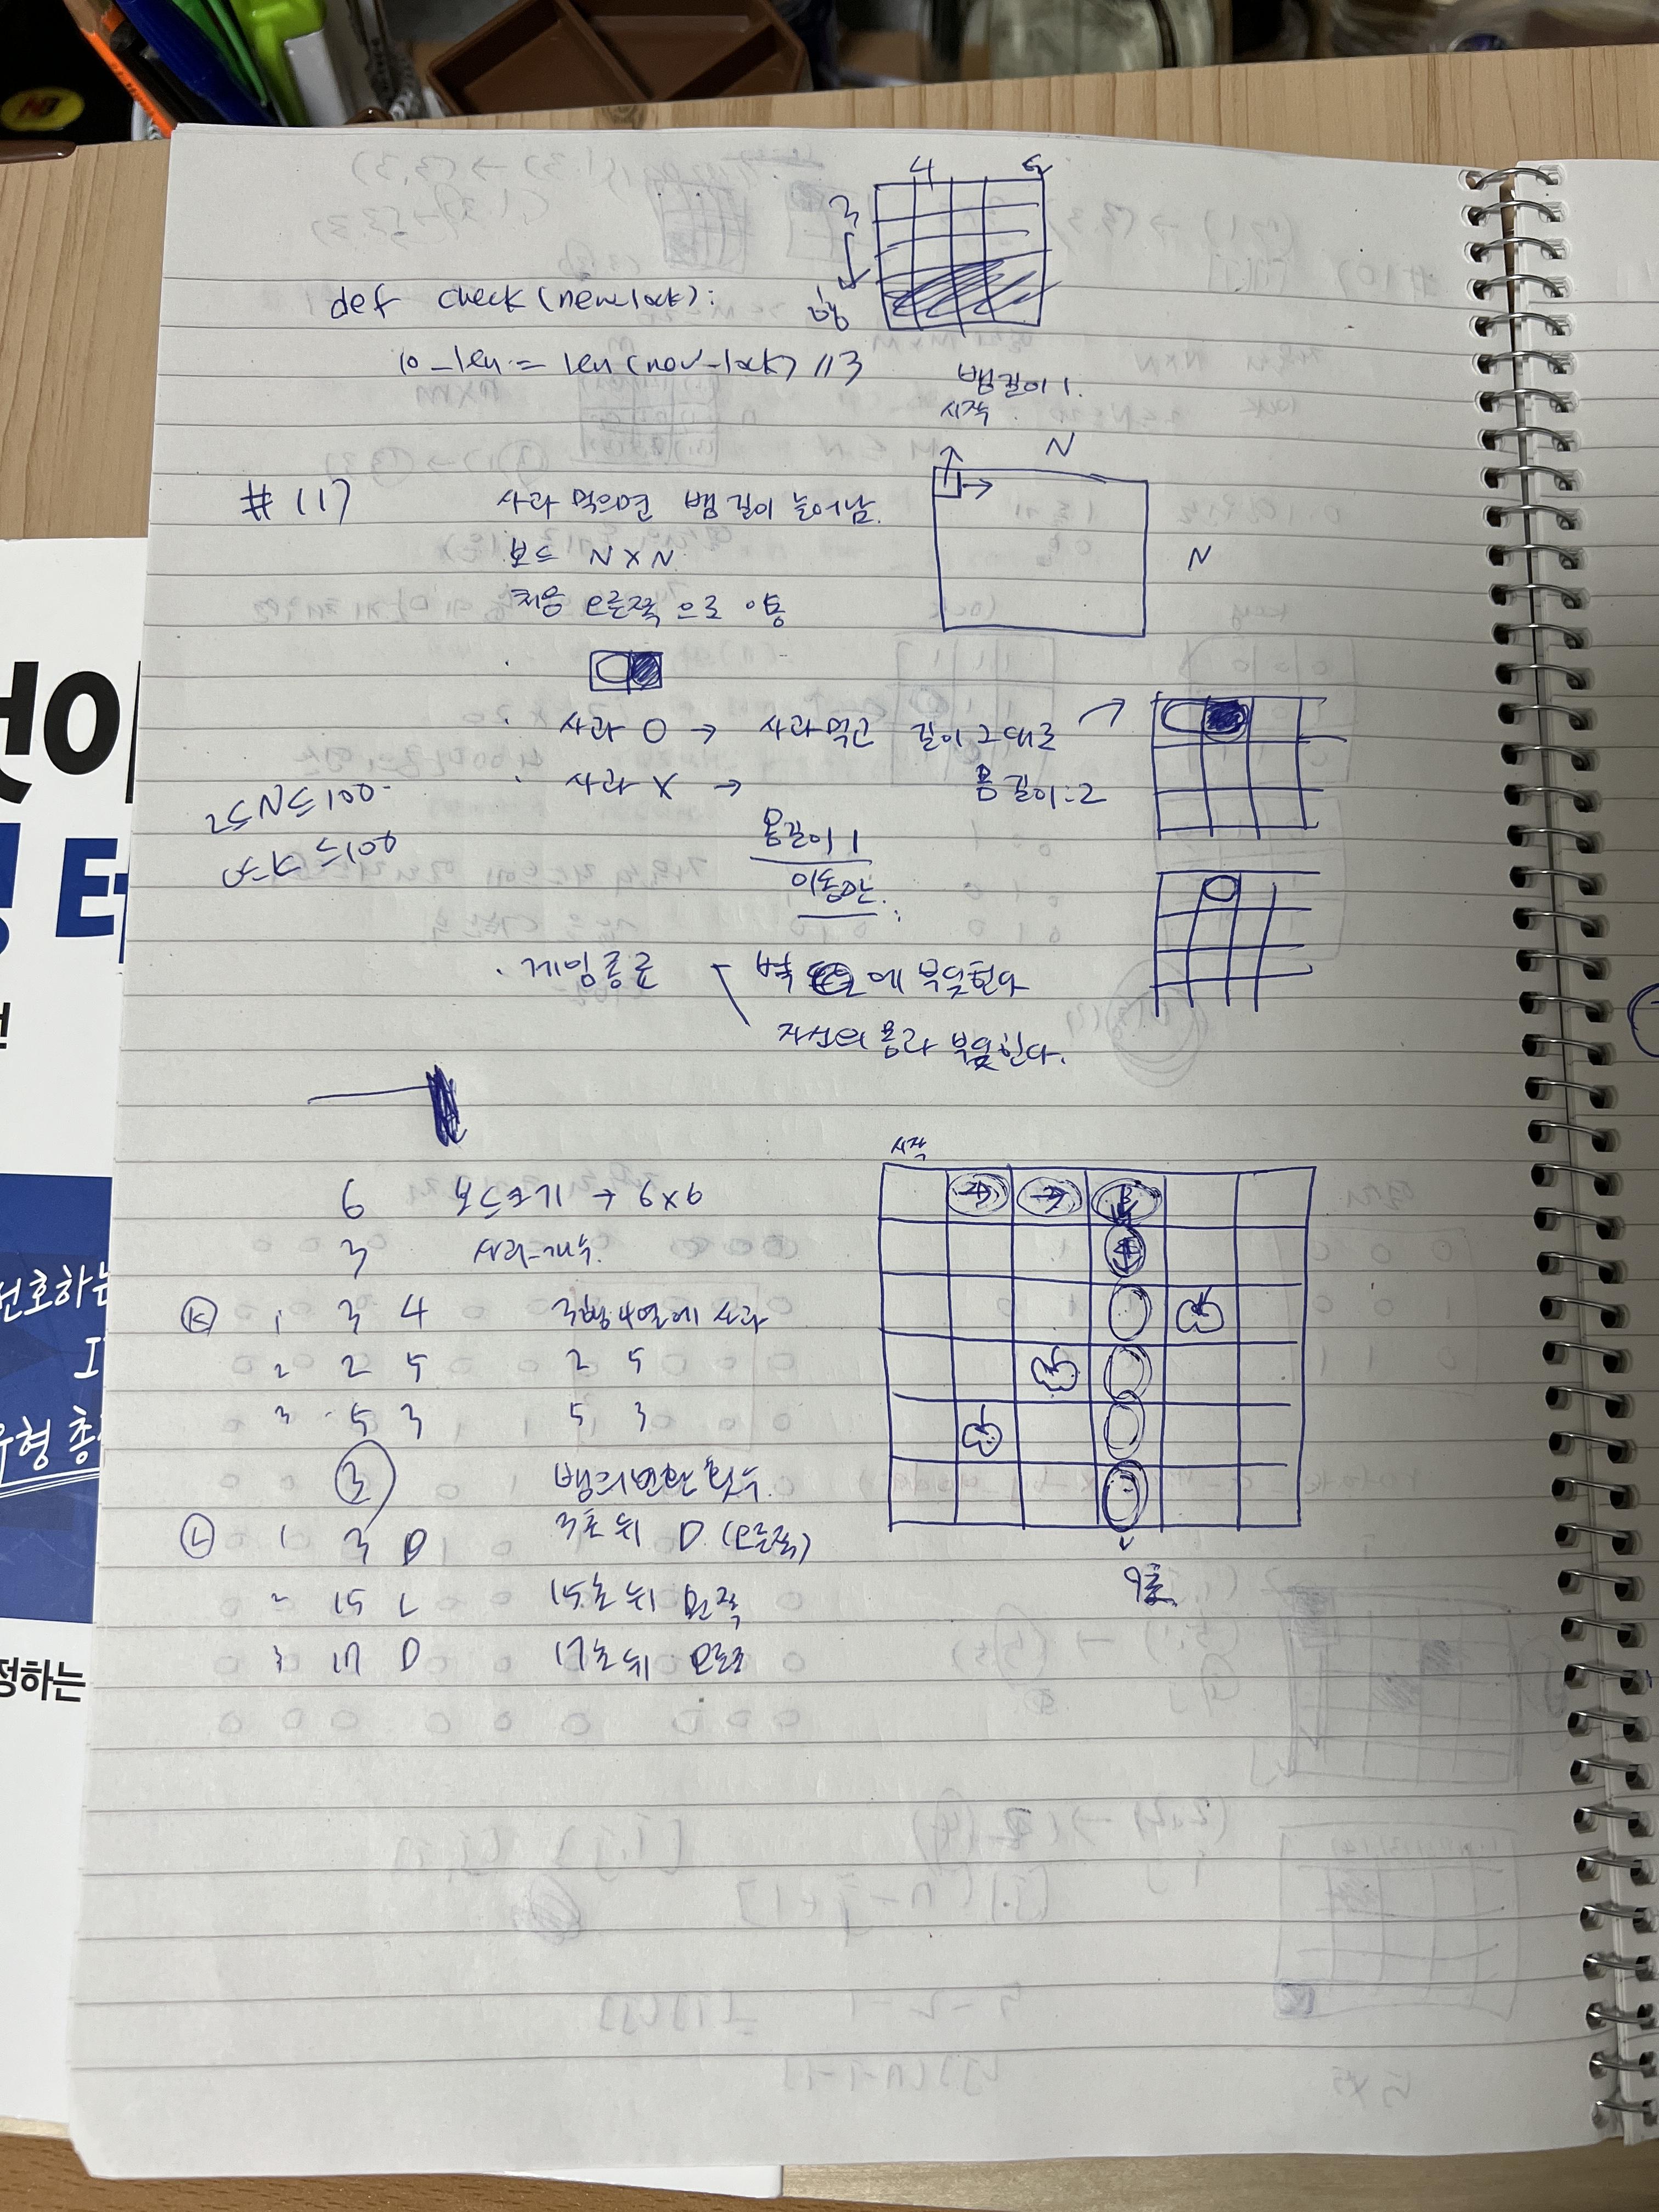 4
3
def check(new_lock):
lo_len = len(new_lock) //3
뱀길이 1.
시작
N
#117
사과 먹으면 뱀 길이 늘어남.
보드 N×N.
N
처음 오른쪽 으로 이동
사과 O → 사과먹고 길이 그대로
몸길이:2
사과 X →
2≤N≤100
0≤K≤100
몸길이 1
이동만.
게임종료
벽 에 부딪힌다
자신의 몸과 부딪힌다.
시작
6 보드크기 → 6×6
3 사과개수.
Ⓚ 1 3 4 3행 4열에 사과
2 2 5 2 5
3 5 3 5 3
3 뱀의 변환 횟수.
Ⓛ 1 3 D 3초 뒤 D (오른쪽)
2 15 L 15초 뒤 왼쪽
3 17 D 17초 뒤 오른쪽
9초
선호하는
유형
정하는